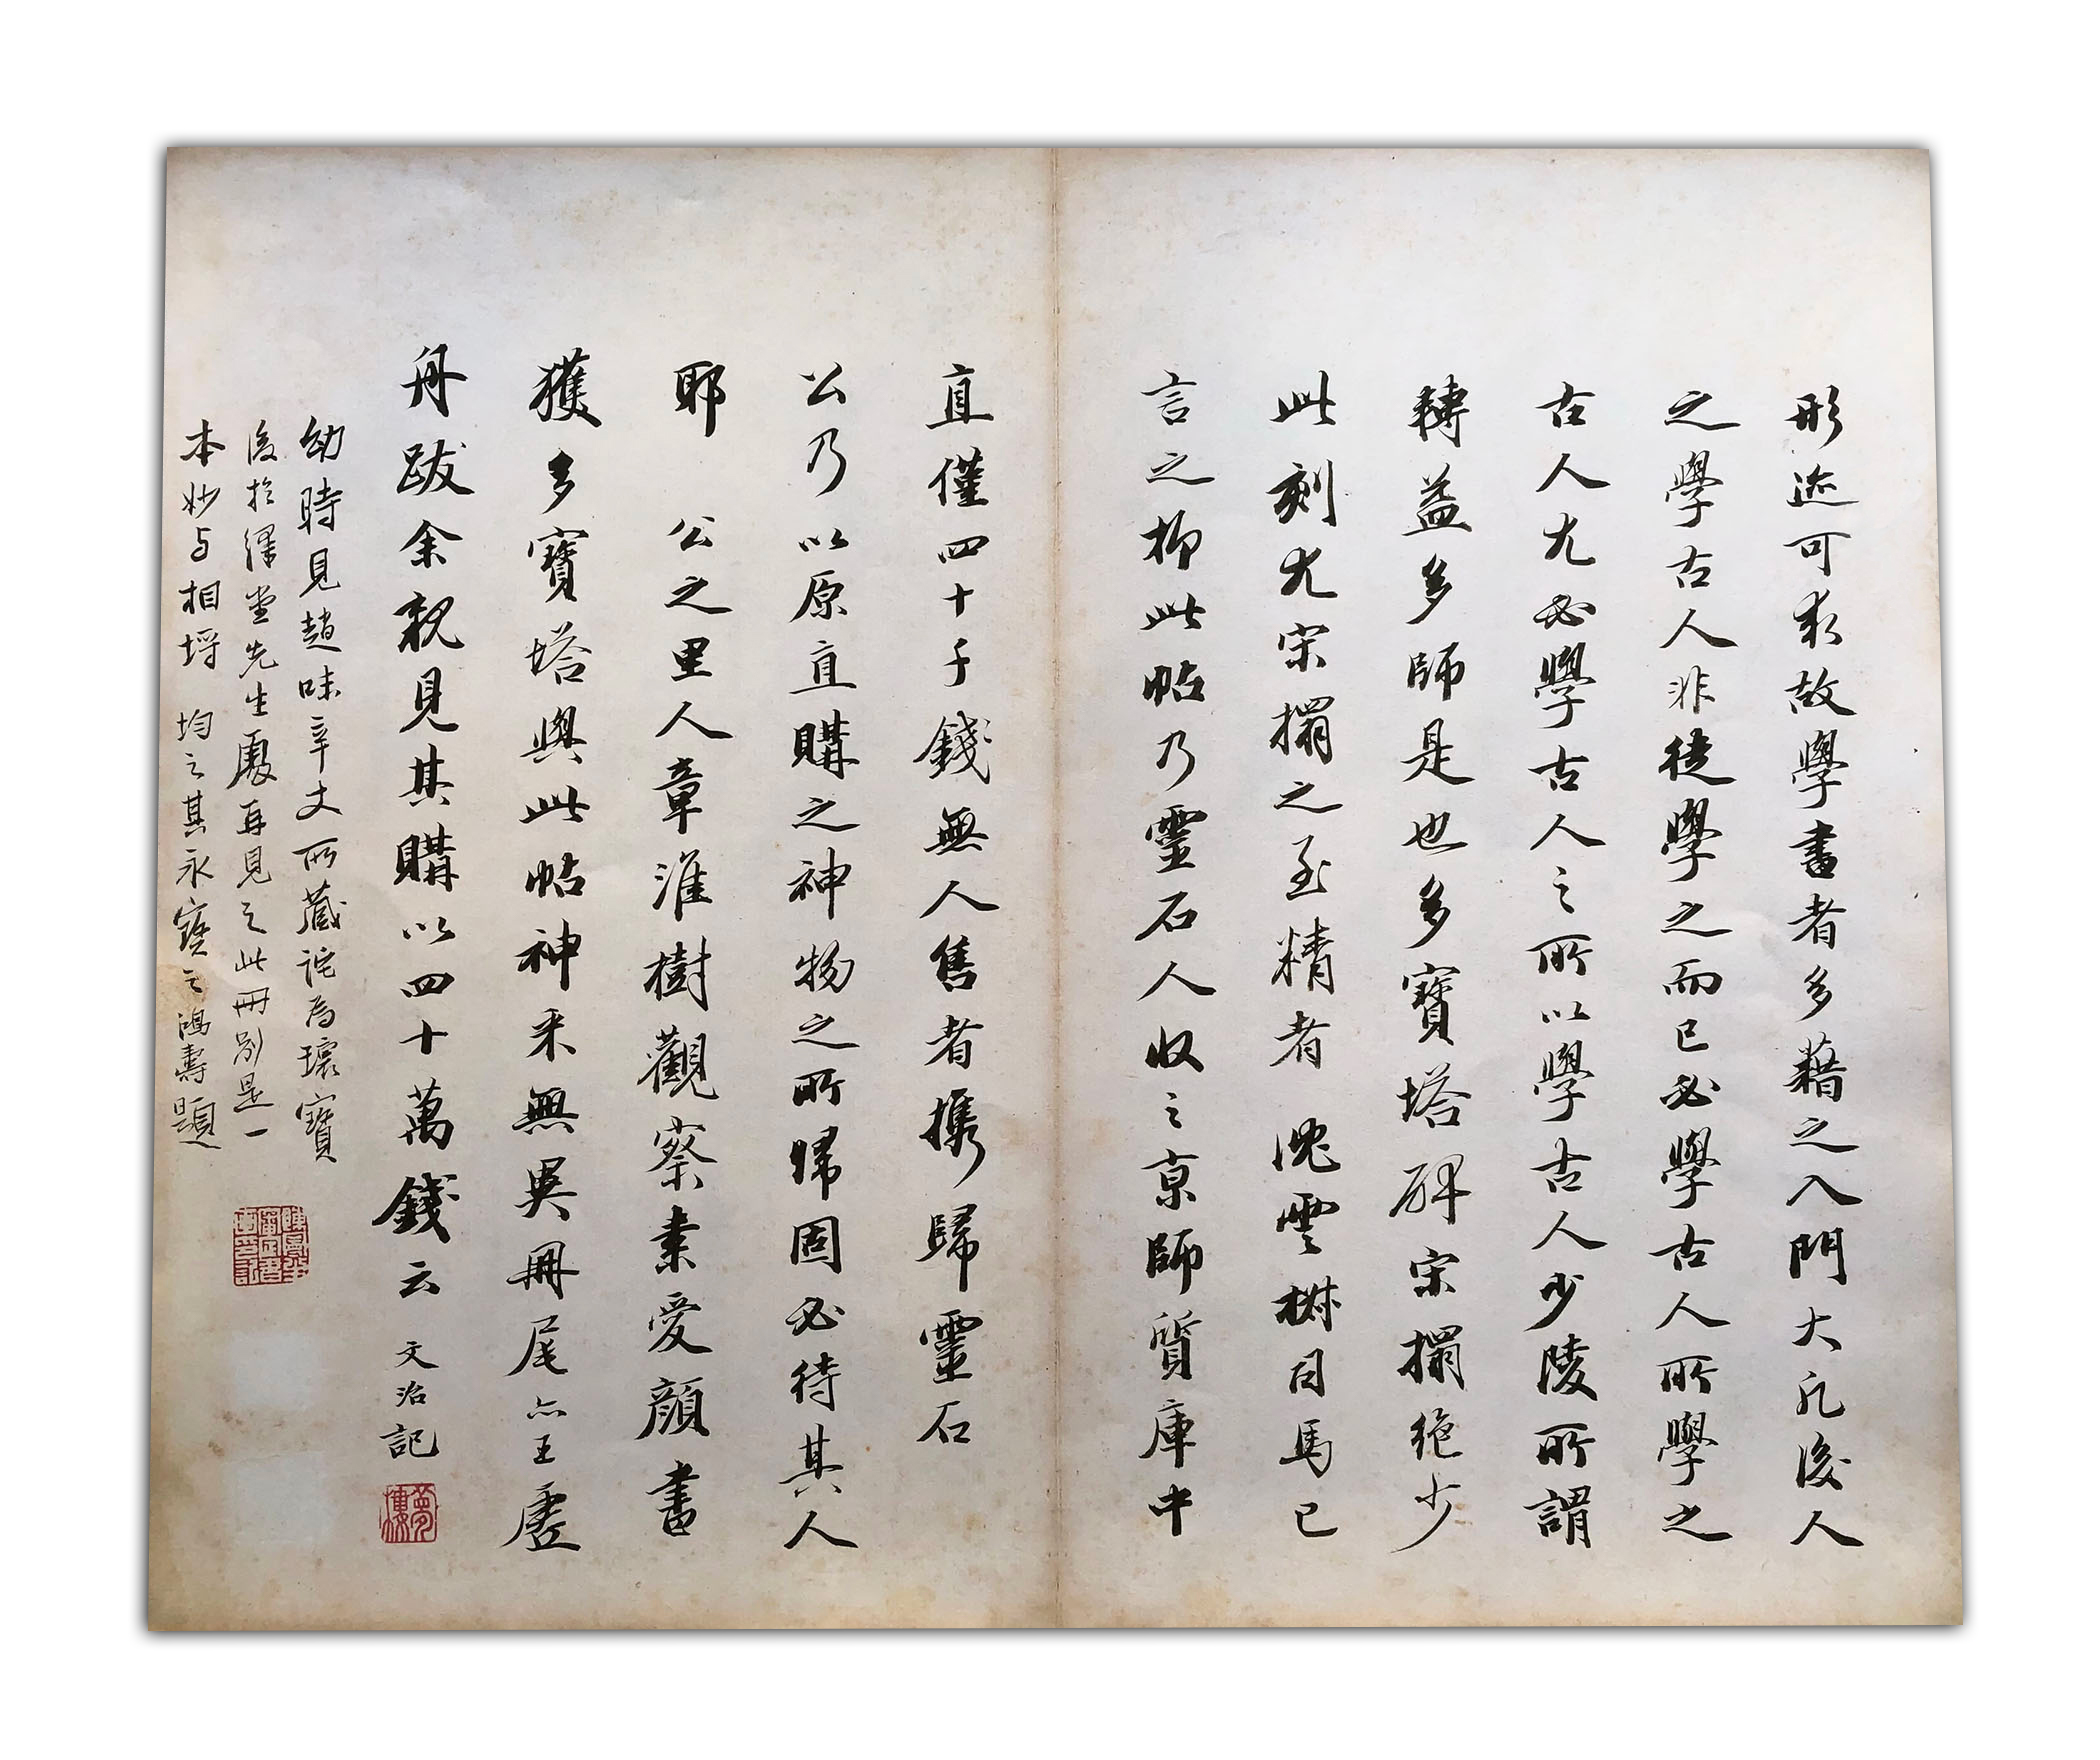 形迹可求故學書者多藉之入門大凡後人
之學古人非徒學之而已必學古人所學之
古人尤必學古人之所以學古人少陵所謂
轉益多師是也多寶塔碑宋搨絶少
此刻尤宋搨之至精者 沈雲椒司馬已
言之柳此帖乃靈石人收之京師質庫中
直僅四十千錢無人售者攜歸靈石
公乃以原直購之神物之所歸固必待其人
耶 公之里人章淮樹觀察素愛顔書
獲多寶塔與此帖神采無異冊尾亦王虛
舟跋余親見其購以四十萬錢云 文治記
夢樓
幼時見趙味辛丈所藏詫為瓌寶
後於澤堂先生處再見之此冊別是一
本妙与相埒 均之其永寶之鴻壽題